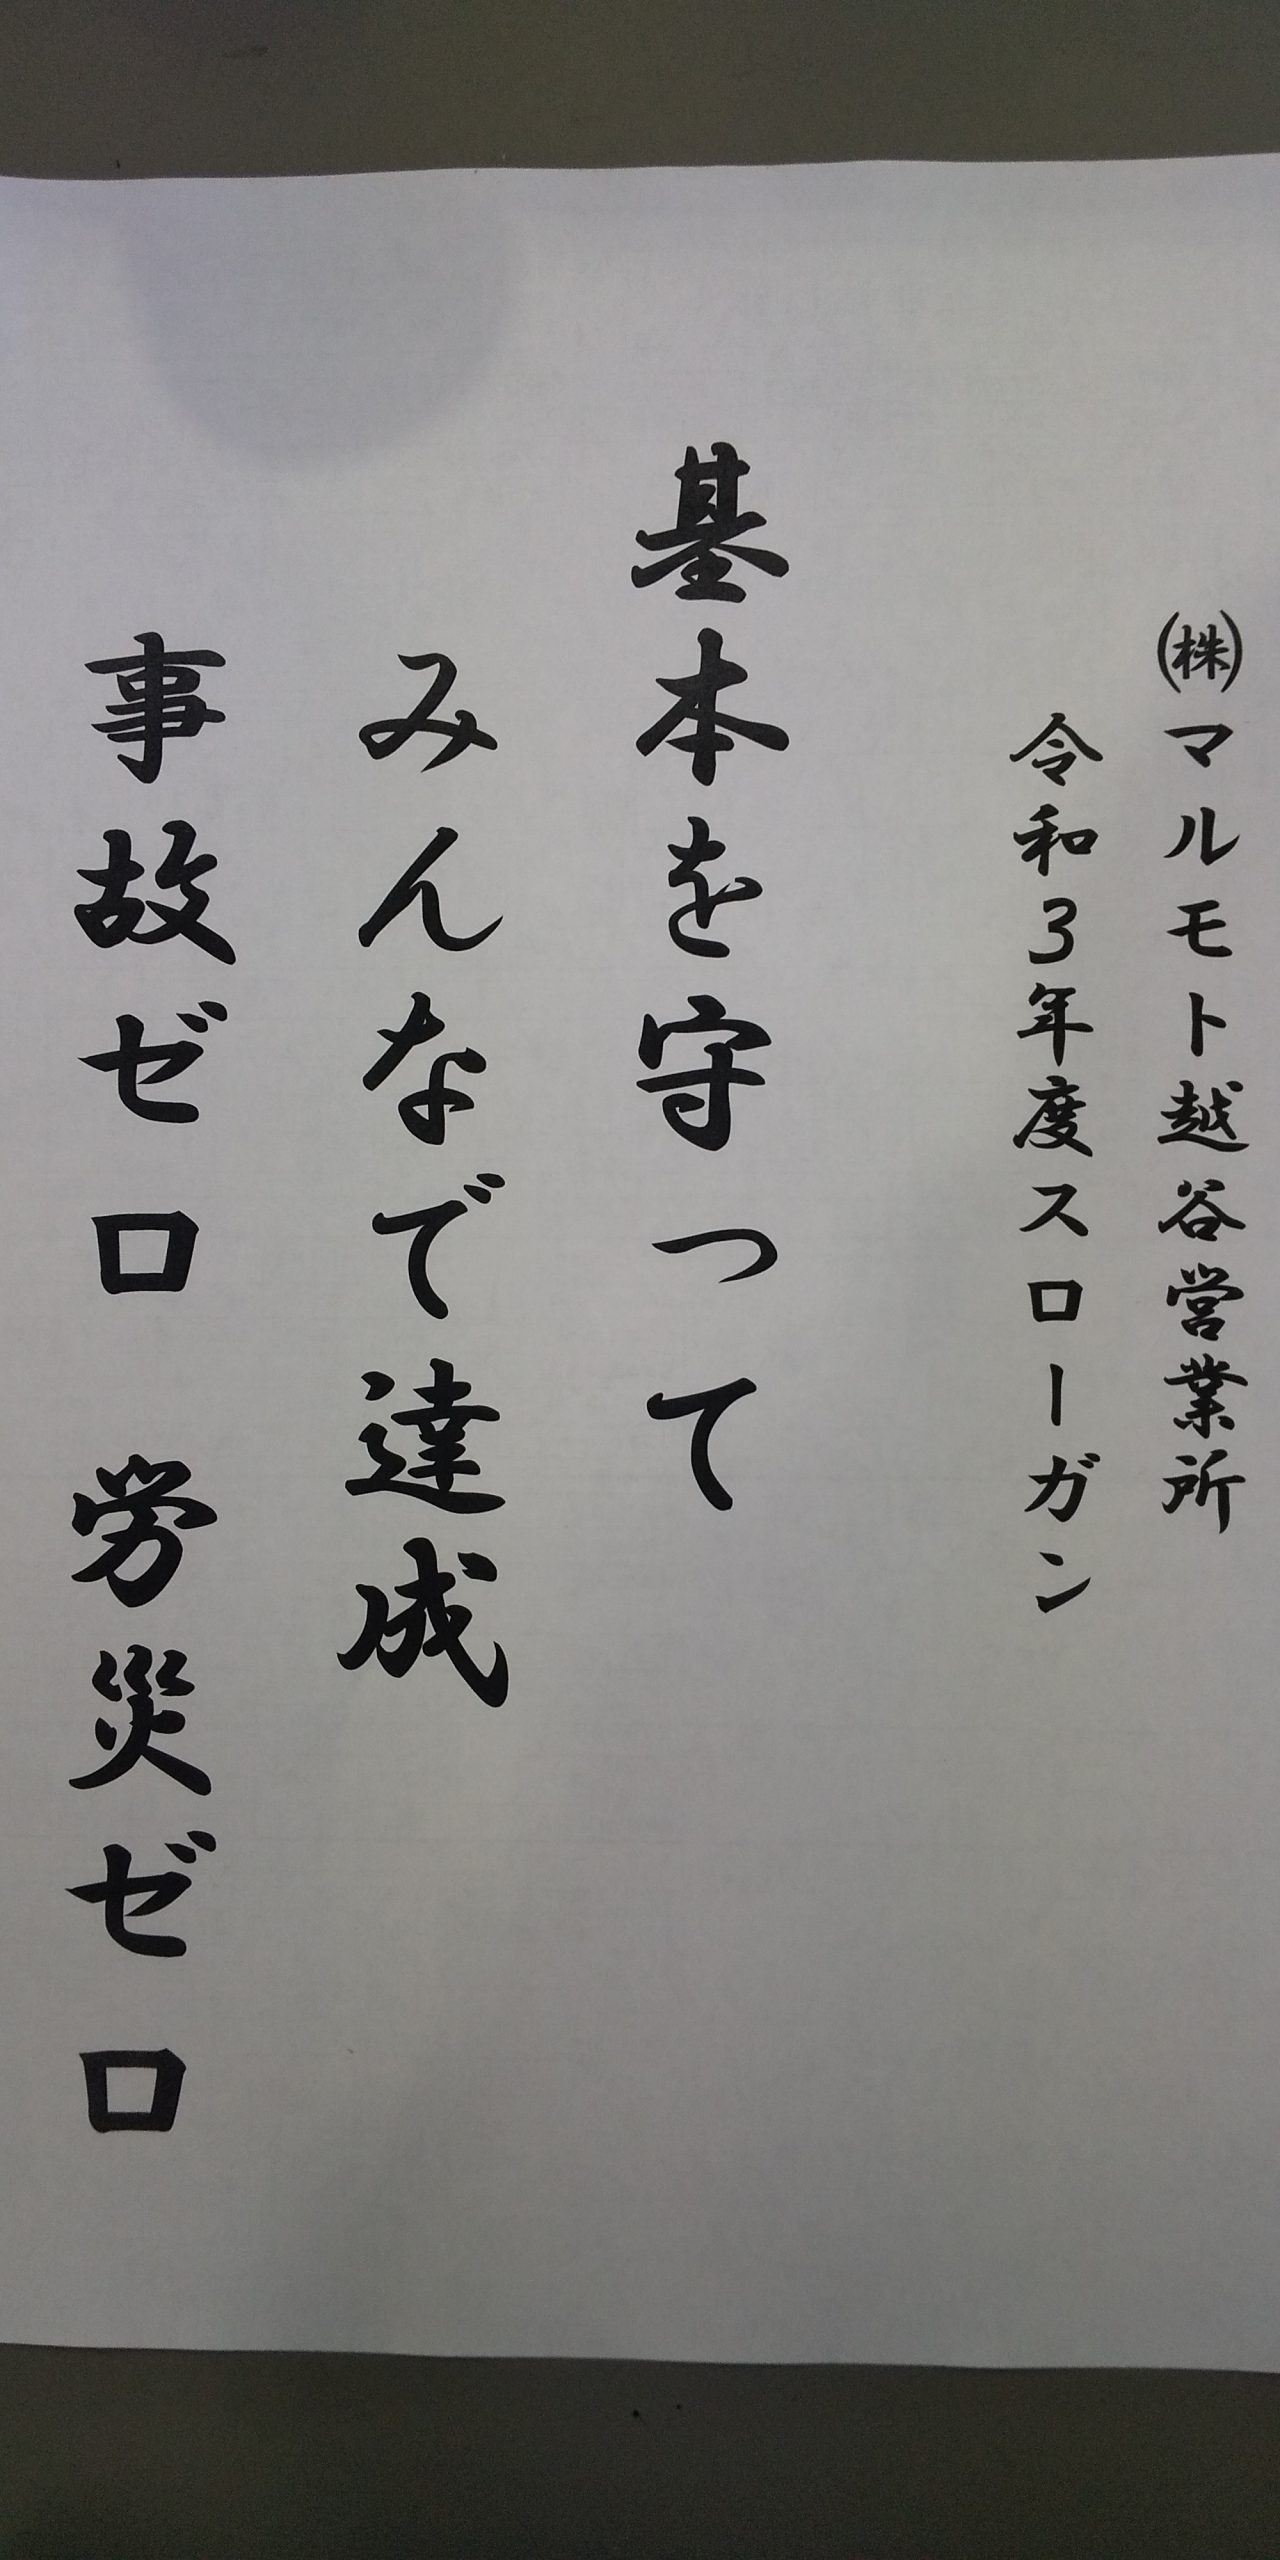 ㈱マルモト越谷営業所
令和3年度スローガン
基本を守って
みんなで達成
事故ゼロ　労災ゼロ